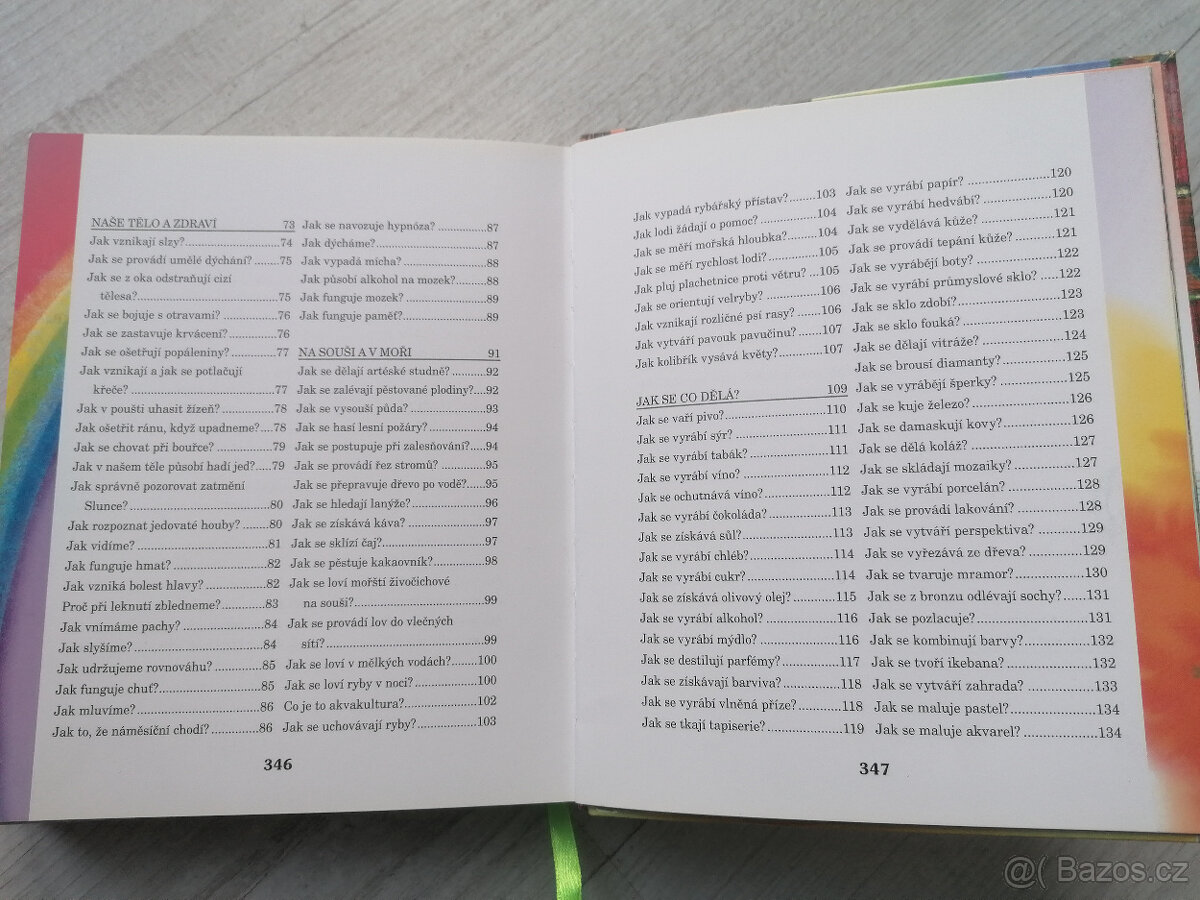 NAŠE TĚLO A ZDRAVÍ 73
Jak vznikají slzy? 74
Jak se provádí umělé dýchání? 75
Jak se z oka odstraňují cizí
tělesa? 75
Jak se bojuje s otravami? 76
Jak se zastavuje krvácení? 76
Jak se ošetřují popáleniny? 77
Jak vznikají a jak se potlačují
křeče? 77
Jak v poušti uhasit žízeň? 78
Jak ošetřit ránu, když upadneme? 78
Jak se chovat při bouřce? 79
Jak v našem těle působí hadí jed? 79
Jak správně pozorovat zatmění
Slunce? 80
Jak rozpoznat jedovaté houby? 80
Jak vidíme? 81
Jak funguje hmat? 82
Jak vzniká bolest hlavy? 82
Proč při leknutí zbledneme? 83
Jak vnímáme pachy? 84
Jak slyšíme? 84
Jak udržujeme rovnováhu? 85
Jak funguje chuť? 85
Jak mluvíme? 86
Jak to, že náměsíční chodí? 86
Jak se navozuje hypnóza? 87
Jak dýcháme? 87
Jak vypadá mícha? 88
Jak působí alkohol na mozek? 88
Jak funguje mozek? 89
Jak funguje paměť? 89
NA SOUŠI A V MOŘI 91
Jak se dělají artéské studně? 92
Jak se zalévají pěstované plodiny? 92
Jak se vysouší půda? 93
Jak se hasí lesní požáry? 94
Jak se postupuje při zalesňování? 94
Jak se provádí řez stromů? 95
Jak se přepravuje dřevo po vodě? 95
Jak se hledají lanýže? 96
Jak se získává káva? 97
Jak se sklízí čaj? 97
Jak se pěstuje kakaovník? 98
Jak se loví mořští živočichové
na souši? 99
Jak se provádí lov do vlečných
sítí? 99
Jak se loví v mělkých vodách? 100
Jak se loví ryby v noci? 100
Co je to akvakultura? 102
Jak se uchovávají ryby? 103
346
Jak vypadá rybářský přístav? 103
Jak lodi žádají o pomoc? 104
Jak se měří mořská hloubka? 104
Jak se měří rychlost lodi? 105
Jak pluj plachetnice proti větru? 105
Jak se orientují velryby? 106
Jak vznikají rozličné psí rasy? 106
Jak vytváří pavouk pavučinu? 107
Jak kolibřík vysává květy? 107
JAK SE CO DĚLÁ? 109
Jak se vaří pivo? 110
Jak se vyrábí sýr? 111
Jak se vyrábí tabák? 111
Jak se vyrábí víno? 112
Jak se ochutnává víno? 112
Jak se vyrábí čokoláda? 113
Jak se získává sůl? 113
Jak se vyrábí chléb? 114
Jak se vyrábí cukr? 114
Jak se získává olivový olej? 115
Jak se vyrábí alkohol? 116
Jak se vyrábí mýdlo? 116
Jak se destilují parfémy? 117
Jak se získávají barviva? 118
Jak se vyrábí vlněná příze? 118
Jak se tkají tapiserie? 119
Jak se vyrábí papír? 120
Jak se vyrábí hedvábí? 120
Jak se vydělává kůže? 121
Jak se provádí tepání kůže? 121
Jak se vyrábějí boty? 122
Jak se vyrábí průmyslové sklo? 122
Jak se sklo zdobí? 123
Jak se sklo fouká? 123
Jak se dělají vitráže? 124
Jak se brousí diamanty? 125
Jak se vyrábějí šperky? 125
Jak se kuje železo? 126
Jak se damaskují kovy? 126
Jak se dělá koláž? 127
Jak se skládají mozaiky? 127
Jak se vyrábí porcelán? 128
Jak se provádí lakování? 128
Jak se vytváří perspektiva? 129
Jak se vyřezává ze dřeva? 129
Jak se tvaruje mramor? 130
Jak se z bronzu odlévají sochy? 131
Jak se pozlacuje? 131
Jak se kombinují barvy? 132
Jak se tvoří ikebana? 132
Jak se vytváří zahrada? 133
Jak se maluje pastel? 134
Jak se maluje akvarel? 134
347
@( Bazos.cz